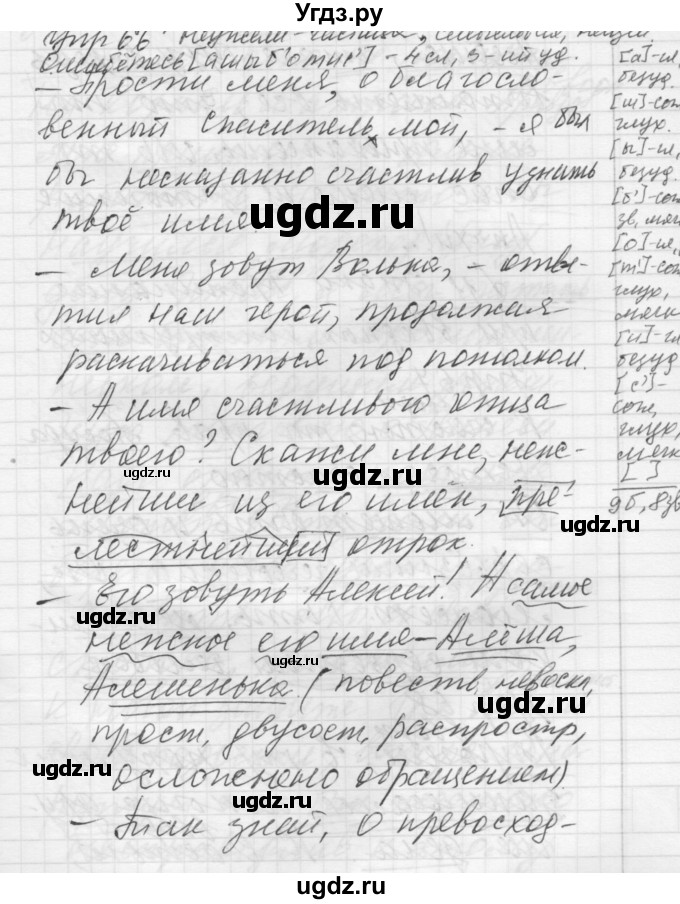 Угдз.ру
Упр 66 Неужели - частица,
Ошибётесь [ашыб'от'ис'] - 4 сл, 3-ий уд.
– Прости меня, о благосло-
венный спаситель мой, – я был
бы несказанно счастлив узнать
твоё имя.
– Меня зовут Волька, – отве-
тил наш герой, продолжая
раскачиваться под потолком.
– А имя счастливого отца
твоего? Скажи мне, неж-
нейшие из его имён, пре-
лестнейший отрок.
– Его зовуть Алексей! И самое
нежное его имя – Алёша,
Алешенька (повеств, невоскл,
прост, двусост, распростр,
осложнено обращением).
– Так знай, о превосход-
[а]-гл,
безуд.
[ш]-сог
глух.
[ы]-гл,
безуд.
[б']-сог
зв, мяг
[о]-гл,
[т']-сог
глух,
мягк
[и]-гл
безуд
[с']-
согл,
глух,
мягк
[ ]
9б, 8зв
ugdz.ru
ugdz.ru
ugdz.ru
ugdz.ru
ugdz.ru
ugdz.ru
ugdz.ru
ugdz.ru
ugdz.ru
ugdz.ru
ugdz.ru
ugdz.ru
ugdz.ru
ugdz.ru